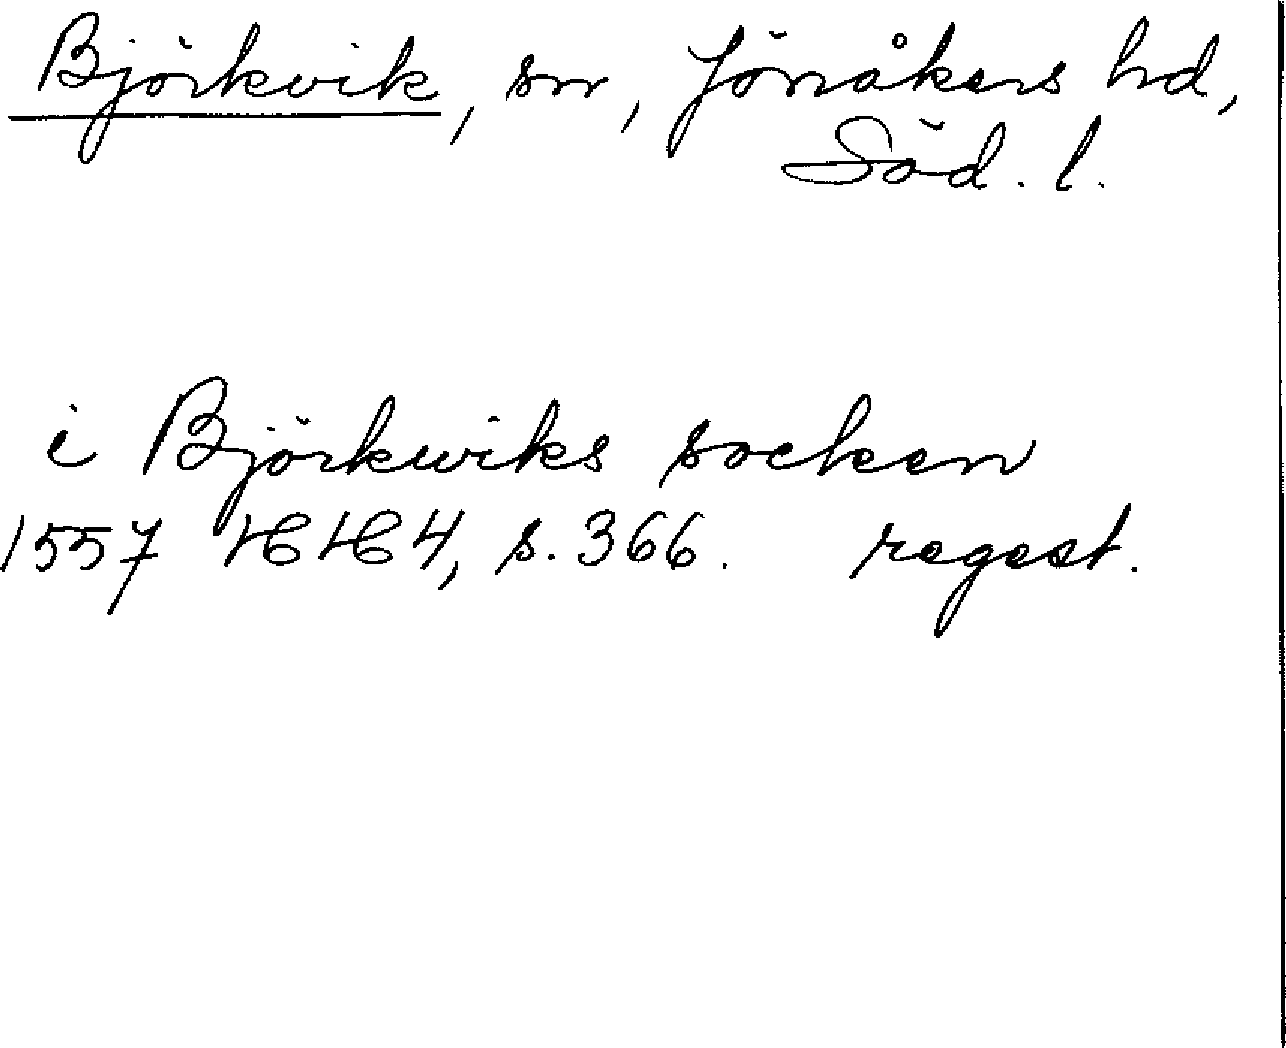 Björkvik, sn, Jönåkers hd,
Söd. l.
i Björkwiks socken
1557 HH 4, s. 366. regest.